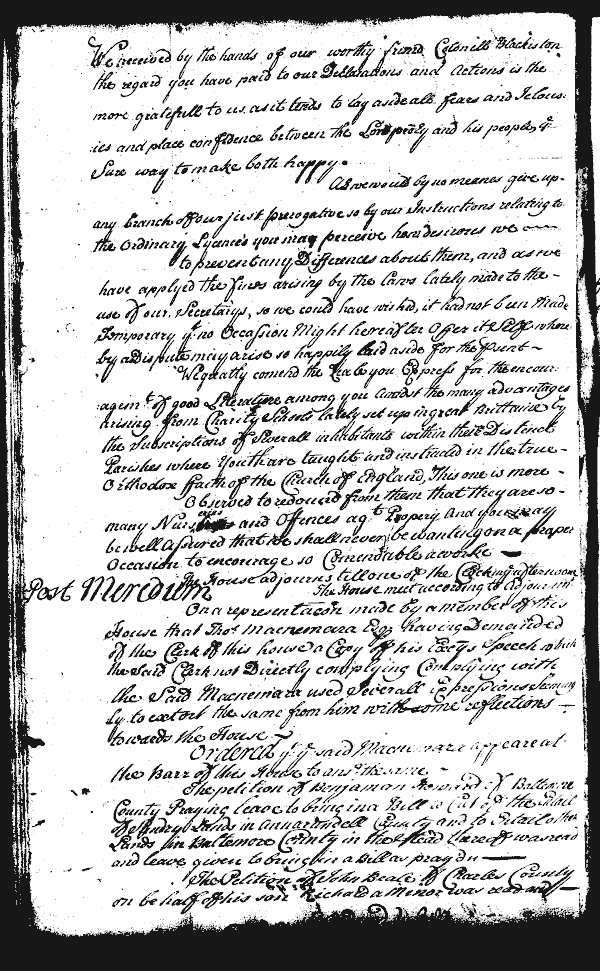 We received by the hands of our worthy friend Colonell Blackiston
the regard you have paid to our Deliberations and Actions is the
more gratefull to us as it tends to lay aside all fears and Jelous-
ies and place confidence between the Lord propiey and his people, &
Sure way to make both happy.
As we would by no meanes give up-
any branch of our just prerogative so by our Instructions relating to
the Ordinary Lycences you may perceive how desirous we
to prevent any Differences about them, and as we
have applyed the fines arising by the Laws lately made to the-
use of our, Secretarys, so we could have wished, it had not been Made
Temporary yt no Occasion Might hereafter Offer it Self where
by a Dispute may arise so happily laid aside for the psent-
We greatly comend the Zeale you Express for the encour-
agemt of good Literature among you amidst the many advantages
arising from Charity Schools lately set up in great Brittaine by
the Subscriptions of Severall inhabitants within their Distinct
Parishes where Youth are taught and instructed in the true-
Orthodox faith of the Church of England, This one is more-
Observed to redound from them that they are so-
many Nurseries and Offences agt Popery And you may
be well assured that we shall never be wanting on a proper
Occasion to encourage so Comendable a worke
The House adjourns till one of the Clock in ye afternoon
Post Meredium The House met according to adjournmt
On a representacon made by a member of this
House that Thos Macnemara Esqr having Demanded
of the Clerk of this house a Copy of his Excys Speech which
the Said Clerk not Directly complying Complying with
the Said Macnemara used Severall Expressions Seming
ly to extort the same from him with some reflections
towards the House
Ordered yt ye said Macnemara appeare at
the Barr of this House to ansr the same
The petition of Benjaman Howard of Baltimore
County Praying leave to bring in a Bill to Cut of the Intail
of Sundry Lands in annarundell County and to Intail other
Lands in Baltemore County in the Stead thereof was read
and leave given to bring in a Bill as prayd
The Petition of John Beale of Charles County
on behalf of his son Richard a Minor was read and